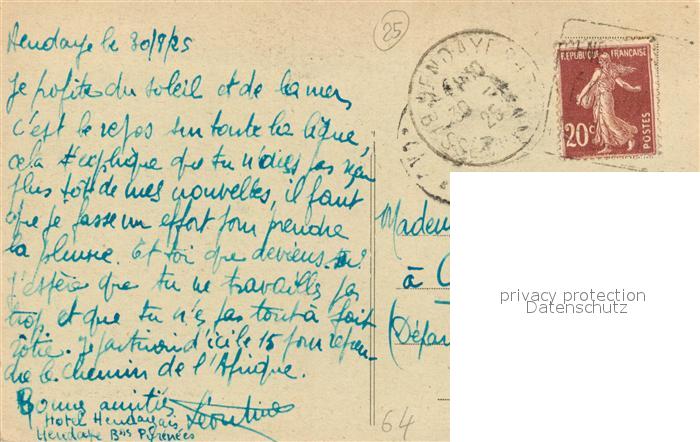 Hendaye le 30/8/25
Je profite du soleil et de la mer,
c'est le repos sur toute la ligne,
cela t'explique que tu n'aies pas reçu
plus tôt de mes nouvelles, il faut
que je fasse un effort pour prendre
la plume. Et toi que deviens-tu?
J'espère que tu ne travailles pas
trop et que tu n'es pas tout à fait
rôtie. Je partirai d'ici le 15 pour repren-
dre le chemin de l'Afrique.
Bonne amitiés
Léontine
Hotel Hendayais
Hendaye Bses Pyrénées
25
HENDAYE
25
REPUBLIQUE FRANÇAISE
20c
POSTES
Madem
à
(Dépar
64
privacy protection
Datenschutz